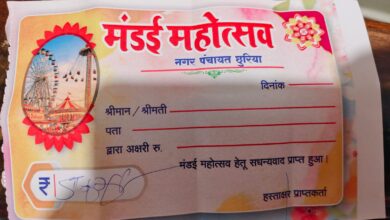 मंडई महोत्सव
नगर पंचायत छुरिया
दिनांक
श्रीमान / श्रीमती
पता
द्वारा अक्षरी रु.
मंडई महोत्सव हेतू सधन्यवाद प्राप्त हुआ।
रु
हस्ताक्षर प्राप्तकर्ता